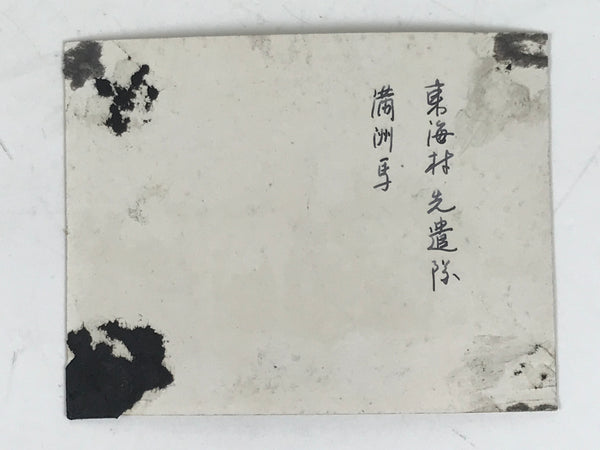 東海村先遣隊
満洲馬